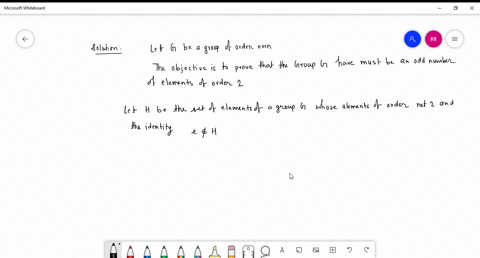 Microsoft Whiteboard
RR
Solution. Let G be a group of order even
The objective is to prove that the Group G have must be an odd number
of elements of order 2
Let H be the set of elements of a group G whose elements of order not 2 and
the identity e ∉ H